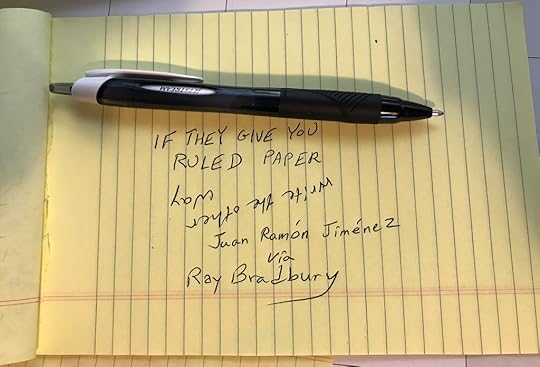 JETSTREAM
IF THEY GIVE YOU
RULED PAPER
write the other
way
Juan Ramón Jiménez
via
Ray Bradbury